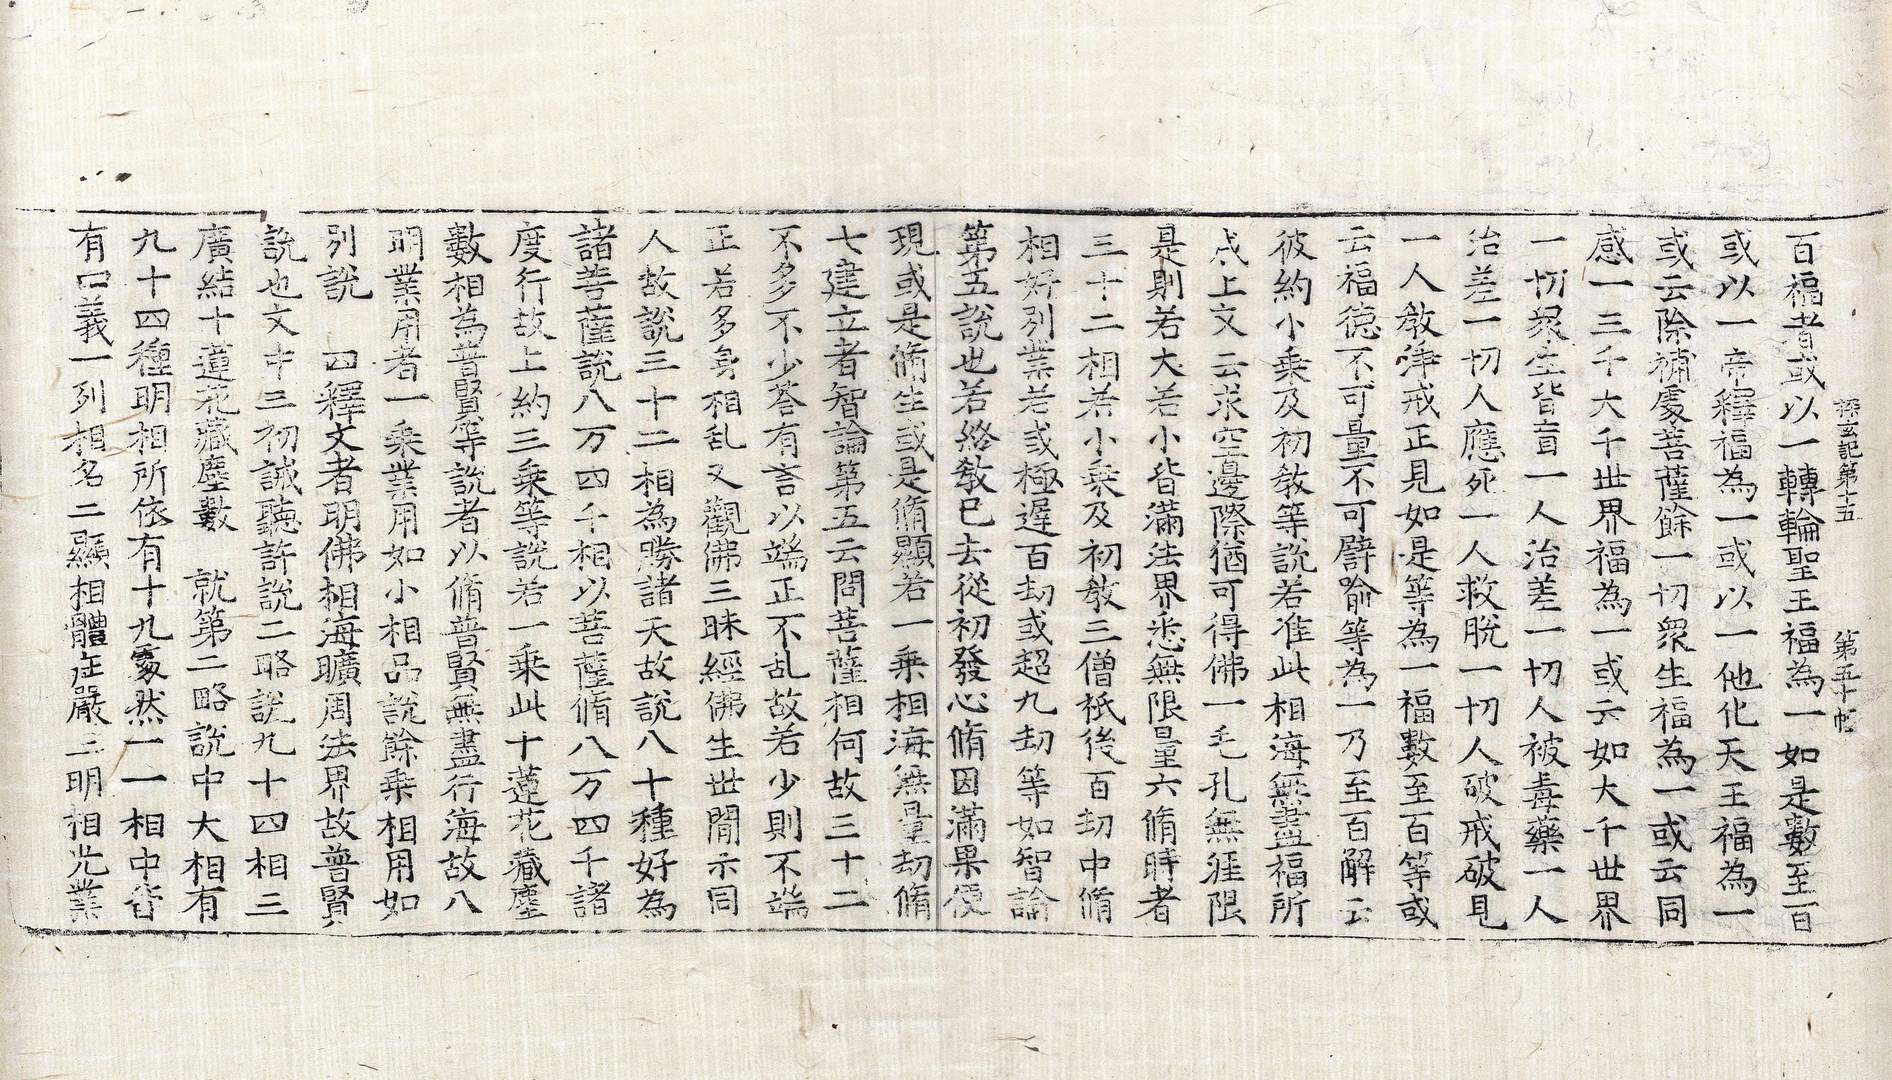 探玄記第十五　第五十帖
百福者或以一轉輪聖王福為一如是數至百
或以一帝釋福為一或以一他化天王福為一
或云除補處菩薩餘一切衆生福為一或云同
感一三千大千世界福為一或云如大千世界
一切衆生皆盲一人治差一切人被毒藥一人
治差一切人應死一人救脫一切人破戒破見
一人教淨戒正見如是等為一福數至百等或
云福德不可量不可譬喻等為一乃至百解云
彼約小乘及初教等說若准此相海無盡福所
成上文云求空邊際猶可得佛一毛孔無涯限
是則若大若小皆滿法界悉無限量六脩時者
三十二相若小乘及初教三僧祇後百劫中脩
相好別業若或極遲百劫或超九劫等如智論
第五說也若終教已去從初發心脩因滿果便
現或是脩生或是脩顯若一乘相海無量劫脩
七建立者智論第五云問菩薩相何故三十二
不多不少荅有言以端正不乱故若少則不端
正若多身相乱又觀佛三昧經佛生世間示同
人故說三十二相為勝諸天故說八十種好為
諸菩薩說八万四千相以菩薩脩八万四千諸
度行故上約三乘等說若一乘此十蓮花藏塵
數相為普賢等說者以脩普賢無盡行海故八
明業用者一乘業用如小相品說餘乘相用如
別說　四釋文者明佛相海曠周法界故普賢
說也文中三初誡聽許說二略說九十四相三
廣結十蓮花藏塵數　就第二略說中大相有
九十四種明相所依有十九處然一一相中皆
有四義一列相名二顯相體莊嚴三明相光業